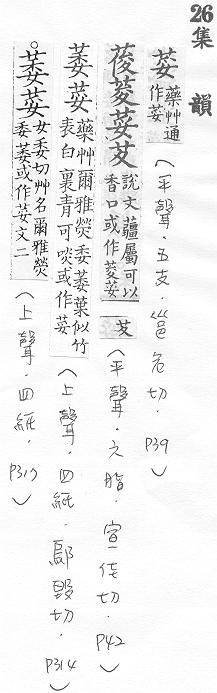 26集韻
荽 藥艸通
作荽
(平聲.五支.邕危切.P39)
葰荾荽芆 說文薑屬可以
香口或作荾荽芆
(平聲.六脂.宣隹切.P42)
萎荽 藥艸爾雅熒委萎葉似竹
表白裏青可啖或作荽
(上聲.四紙.鄔毀切.P314)
。萎荽 女委切艸名爾雅熒
委萎或作荽文二
(上聲.四紙.P317)